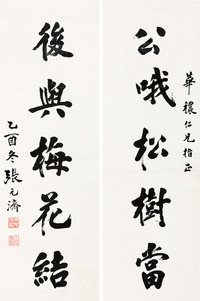 華穠仁兄指正
公哦松樹當
後與梅花結
乙酉冬張元濟